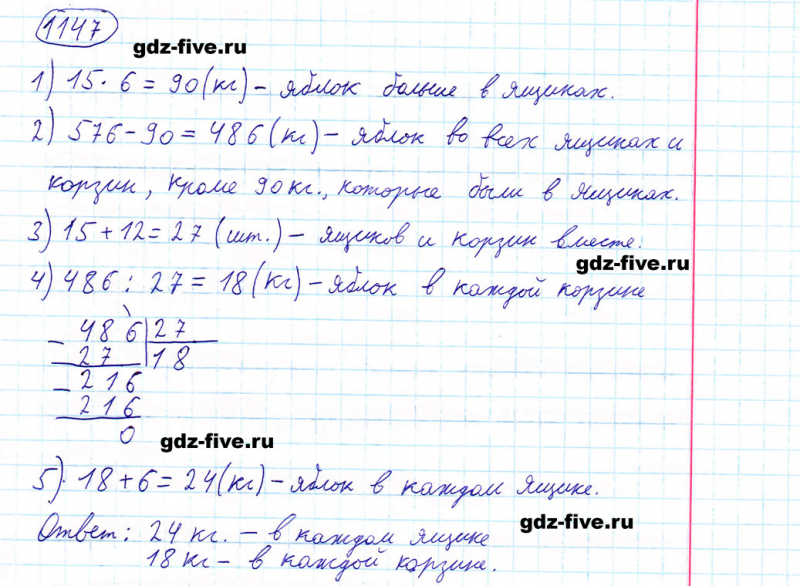 1147
gdz-five.ru
1) 15 · 6 = 90 (кг) – яблок больше в ящиках.
2) 576 – 90 = 486 (кг) – яблок во всех ящиках и
корзин, кроме 90 кг., которые были в ящиках.
3) 15 + 12 = 27 (шт.) – ящиков и корзин вместе.
gdz-five.ru
4) 486 : 27 = 18 (кг) – яблок в каждой корзине
– 486 | 27
27 | 18
– 216
216
0
gdz-five.ru
5) 18 + 6 = 24 (кг) – яблок в каждом ящике.
gdz-five.ru
Ответ: 24 кг. – в каждом ящике
18 кг – в каждой корзине.